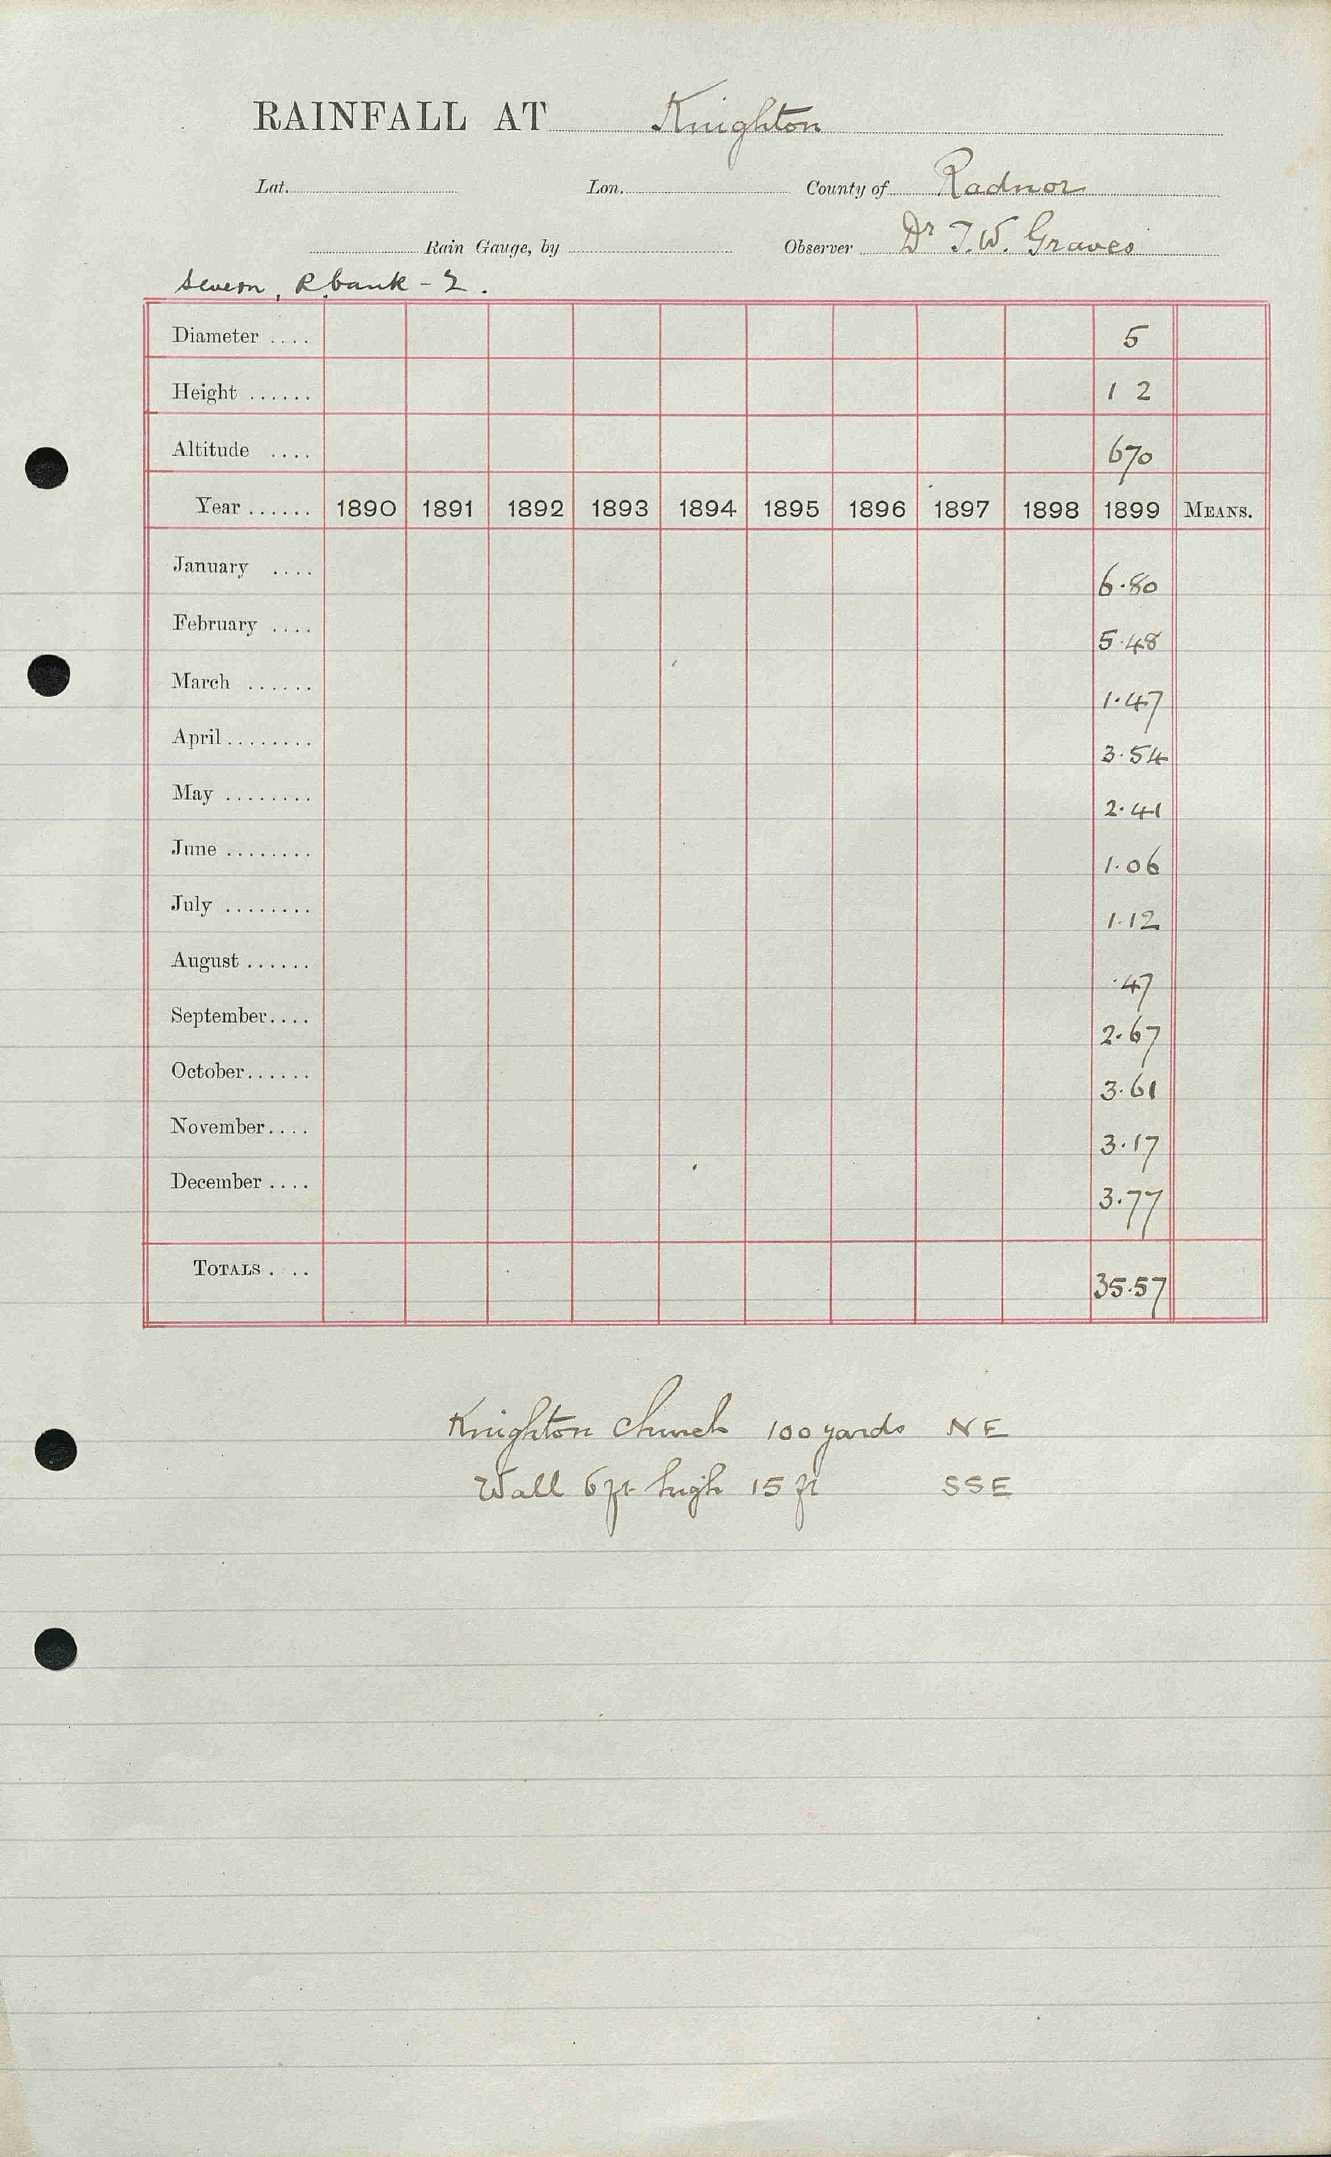 RAINFALL AT Knighton
Lat. Lon. County of Radnor
Rain Gauge, by Observer Dr T. W. Graves
Severn, R bank - 2.
Diameter .... 5
Height ...... 1 2
Altitude .... 670
Year ...... 1890 1891 1892 1893 1894 1895 1896 1897 1898 1899 MEANS.
January .... 6.80
February .... 5.48
March ...... 1.47
April ........ 3.54
May ........ 2.41
June ........ 1.06
July ........ 1.12
August ...... .47
September .... 2.67
October ...... 3.61
November .... 3.17
December .... 3.77
TOTALS .... 35.57
Knighton Church 100 yards NE
Wall 6 ft high 15 ft SSE